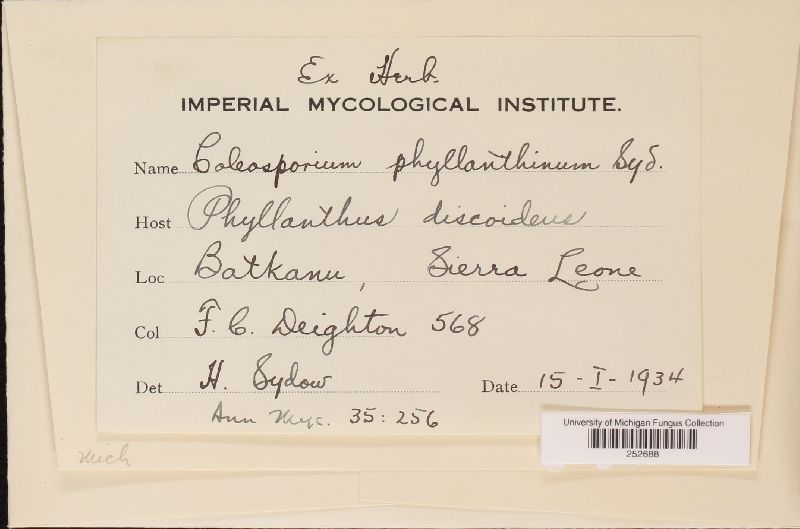 Ex Herb.
IMPERIAL MYCOLOGICAL INSTITUTE.
Name Coleosporium phyllanthinum Syd.
Host Phyllanthus discoideus
Loc Batkanu, Sierra Leone
Col F. C. Deighton 568
Det H. Sydow Date 15-I-1934
Ann Myc. 35:256
University of Michigan Fungus Collection
252688
Mich